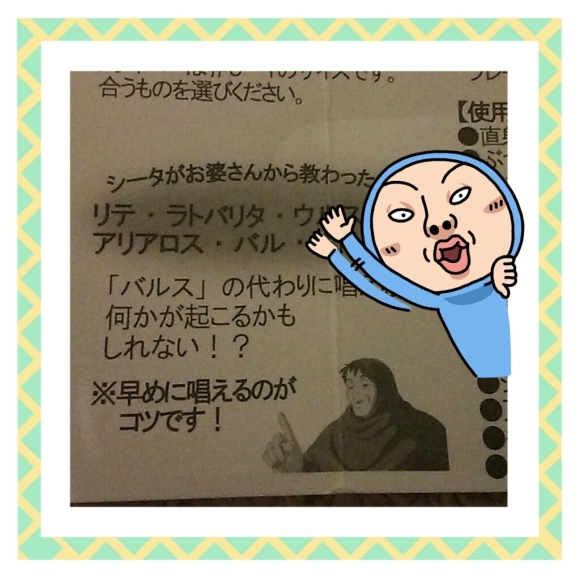 合うものを選びください。
シータがお婆さんから教わった
リテ・ラトバリタ・ウ
アリアロス・バル・
「バルス」の代わりに唱
何かが起こるかも
しれない！？
※早めに唱えるのが
コツです！
【使用
●直
●ぶ